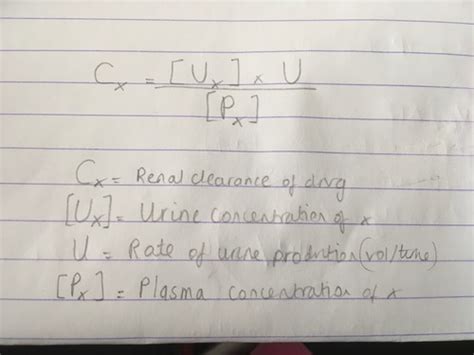 Cx = [Ux] x U
[Px]
Cx = Renal clearance of drug
[Ux] = Urine concentration of x
U = Rate of urine prodution (vol/time)
[Px] = Plasma concentration of x